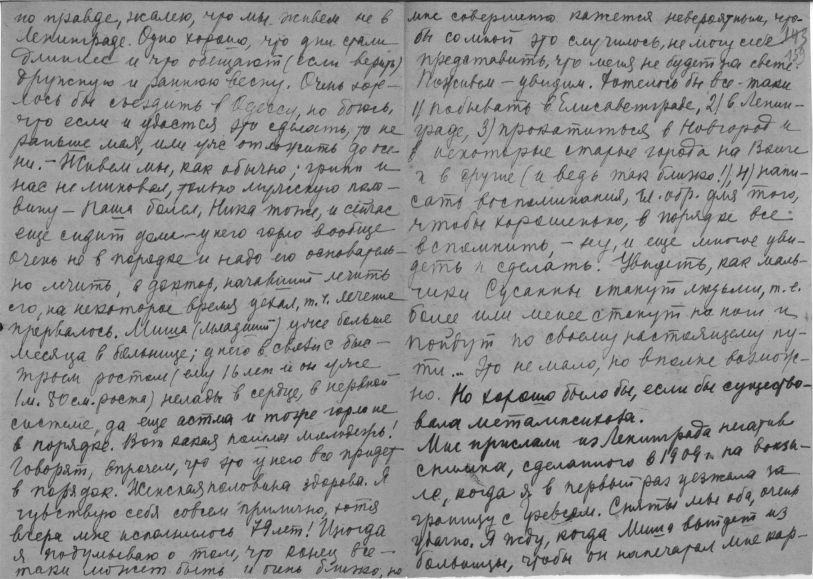 по правде, жалею, что мы живем не в
Ленинграде. Одно хорошо, что дни стали
длиннее и что обещают (если верить)
дружную и раннюю весну. Очень хоте-
лось бы съездить в Одессу, но боюсь,
что если и удастся это сделать, то не
раньше мая, или уже отложить до осе-
ни. – Живем мы, как обычно; грипп и
нас не миновал, только мужскую поло-
вину – Паша болел, Ника тоже, и сейчас
еще сидит дома – у него горло вообще
очень не в порядке и надо его основатель-
но лечить, а доктор, начавший лечить
его, на некоторое время уехал, т.ч. лечение
прервалось. Миша (младший) уже больше
месяца в больнице; у него в связи с быс-
трым ростом (ему 16 лет и он уже
1 м. 80 см. роста) нелады в сердце, в нервной
системе, да еще астма и тоже горло не
в порядке. Вот какая пошла молодежь!
Говорят, впрочем, что это у него все придет
в порядок. Женская половина здорова. Я
чувствую себя совсем прилично, хотя
вчера мне исполнилось 79 лет! Иногда
я подумываю о том, что конец все-
таки может быть и очень близко, но
мне совершенно кажется невероятным, что-
бы со мной это случилось, не могу себе
представить, что меня не будет на свете.
Поживем – увидим. Хотелось бы все-таки
1) побывать в Елисаветграде, 2) в Ленин-
граде, 3) прокатиться в Новгород и
в некоторые старые города на Волге
и в другие (и ведь так близко!), 4) напи-
сать воспоминания, гл. обр. для того,
чтобы хорошенько, в порядке все
вспомнить, – ну, и еще многое уви-
деть и сделать. Увидеть, как маль-
чики Сусанны станут людьми, т.е.
более или менее станут на ноги и
пойдут по своему настоящему пу-
ти... Это не мало, но вполне возмож-
но. Но хорошо было бы, если бы существо-
вала метампсихоза.
Мне прислали из Ленинграда негатив
снимка, сделанного в 1909 г. на вокза-
ле, когда я в первый раз уезжала за
границу с Сняты мы оба, очень
удачно. Я жду, когда Миша выйдет из
больницы, чтобы он напечатал мне кар-